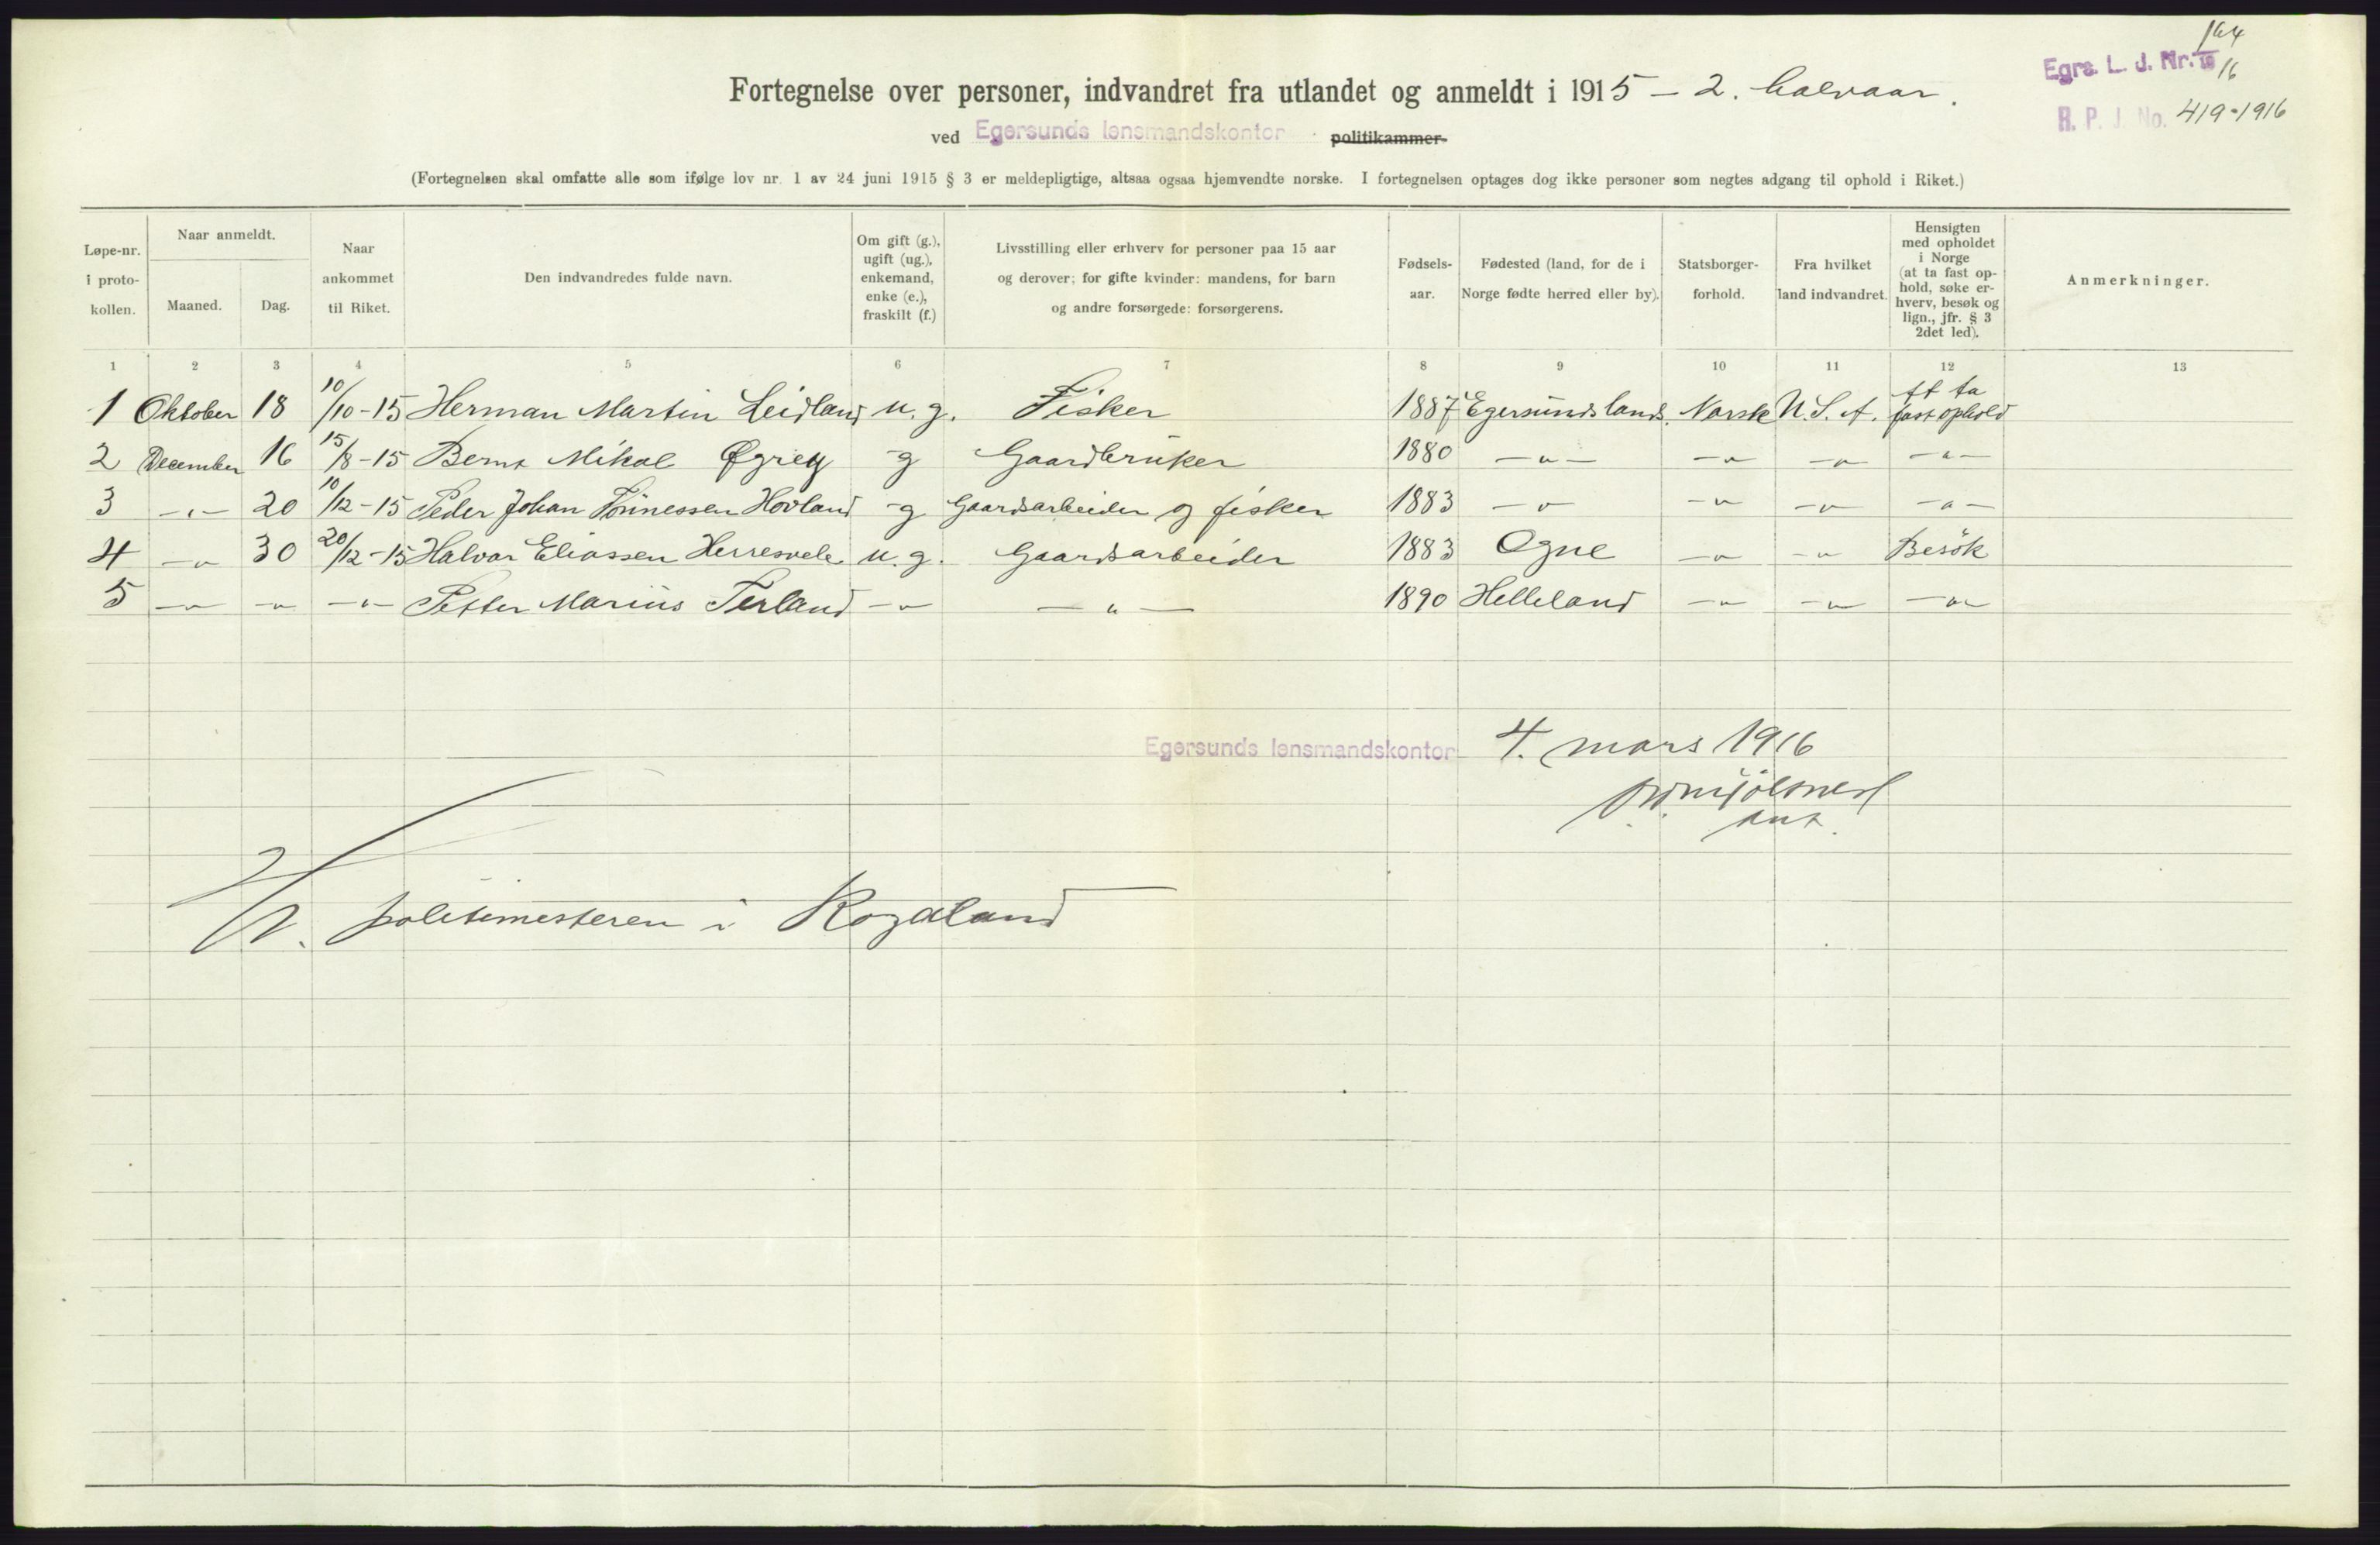 164
Egrs. L. J. Nr. 19 16
R. P. J. No. 419-1916
Fortegnelse over personer, indvandret fra utlandet og anmeldt i 1915 – 2. halvaar.
ved Egersunds lensmandskontor politikammer
(Fortegnelsen skal omfatte alle som ifølge lov nr. 1 av 24 juni 1915 § 3 er meldepligtige, altsaa ogsaa hjemvendte norske. I fortegnelsen optages dog ikke personer som negtes adgang til ophold i Riket.)
Løpe-nr. i proto-kollen. | Naar anmeldt. Maaned. | Dag. | Naar ankommet til Riket. | Den indvandredes fulde navn. | Om gift (g.), ugift (ug.), enkemand, enke (e.), fraskilt (f.) | Livsstilling eller erhverv for personer paa 15 aar og derover; for gifte kvinder: mandens, for barn og andre forsørgede: forsørgerens. | Fødsels-aar. | Fødested (land, for de i Norge fødte herred eller by). | Statsborger-forhold. | Fra hvilket land indvandret. | Hensigten med opholdet i Norge (at ta fast op-hold, søke er-hverv, besøk og lign., jfr. § 3 2det led). | Anmerkninger.
1 2 3 4 5 6 7 8 9 10 11 12 13
1 Oktober 18 10/10-15 Herman Martin Leidland u. g. Fisker 1887 Egersunds lands. Norsk U. S. A. At ta fast ophold
2 December 16 15/8-15 Bernt Mikal Øgrey g Gaardbruker 1880 –"– –"– –"– –"–
3 –"– 20 10/12-15 Peder Johan Tönnessen Hovland g Gaardsarbeider og fisker 1883 –"– –"– –"– –"–
4 –"– 30 20/12-15 Halvor Eliassen Herresvele u. g. Gaardsarbeider 1883 Ogne –"– –"– Besök
5 –"– –"– –"– Petter Marius Terland –"– –"– 1890 Helleland –"– –"– –"–
Egersunds lensmandskontor 4. mars 1916
politimesteren i Rogaland